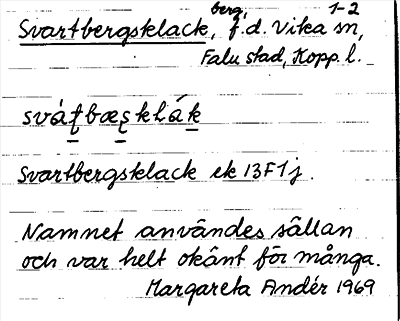 berg, 1-2
Svartbergsklack, f.d. Vika sn,
Falu stad, Kopp. l.
svát̠bæs̠klák̠
Svartbergsklack ek 13F1j.
Namnet användes sällan
och var helt okänt för många.
Margareta Andér 1969